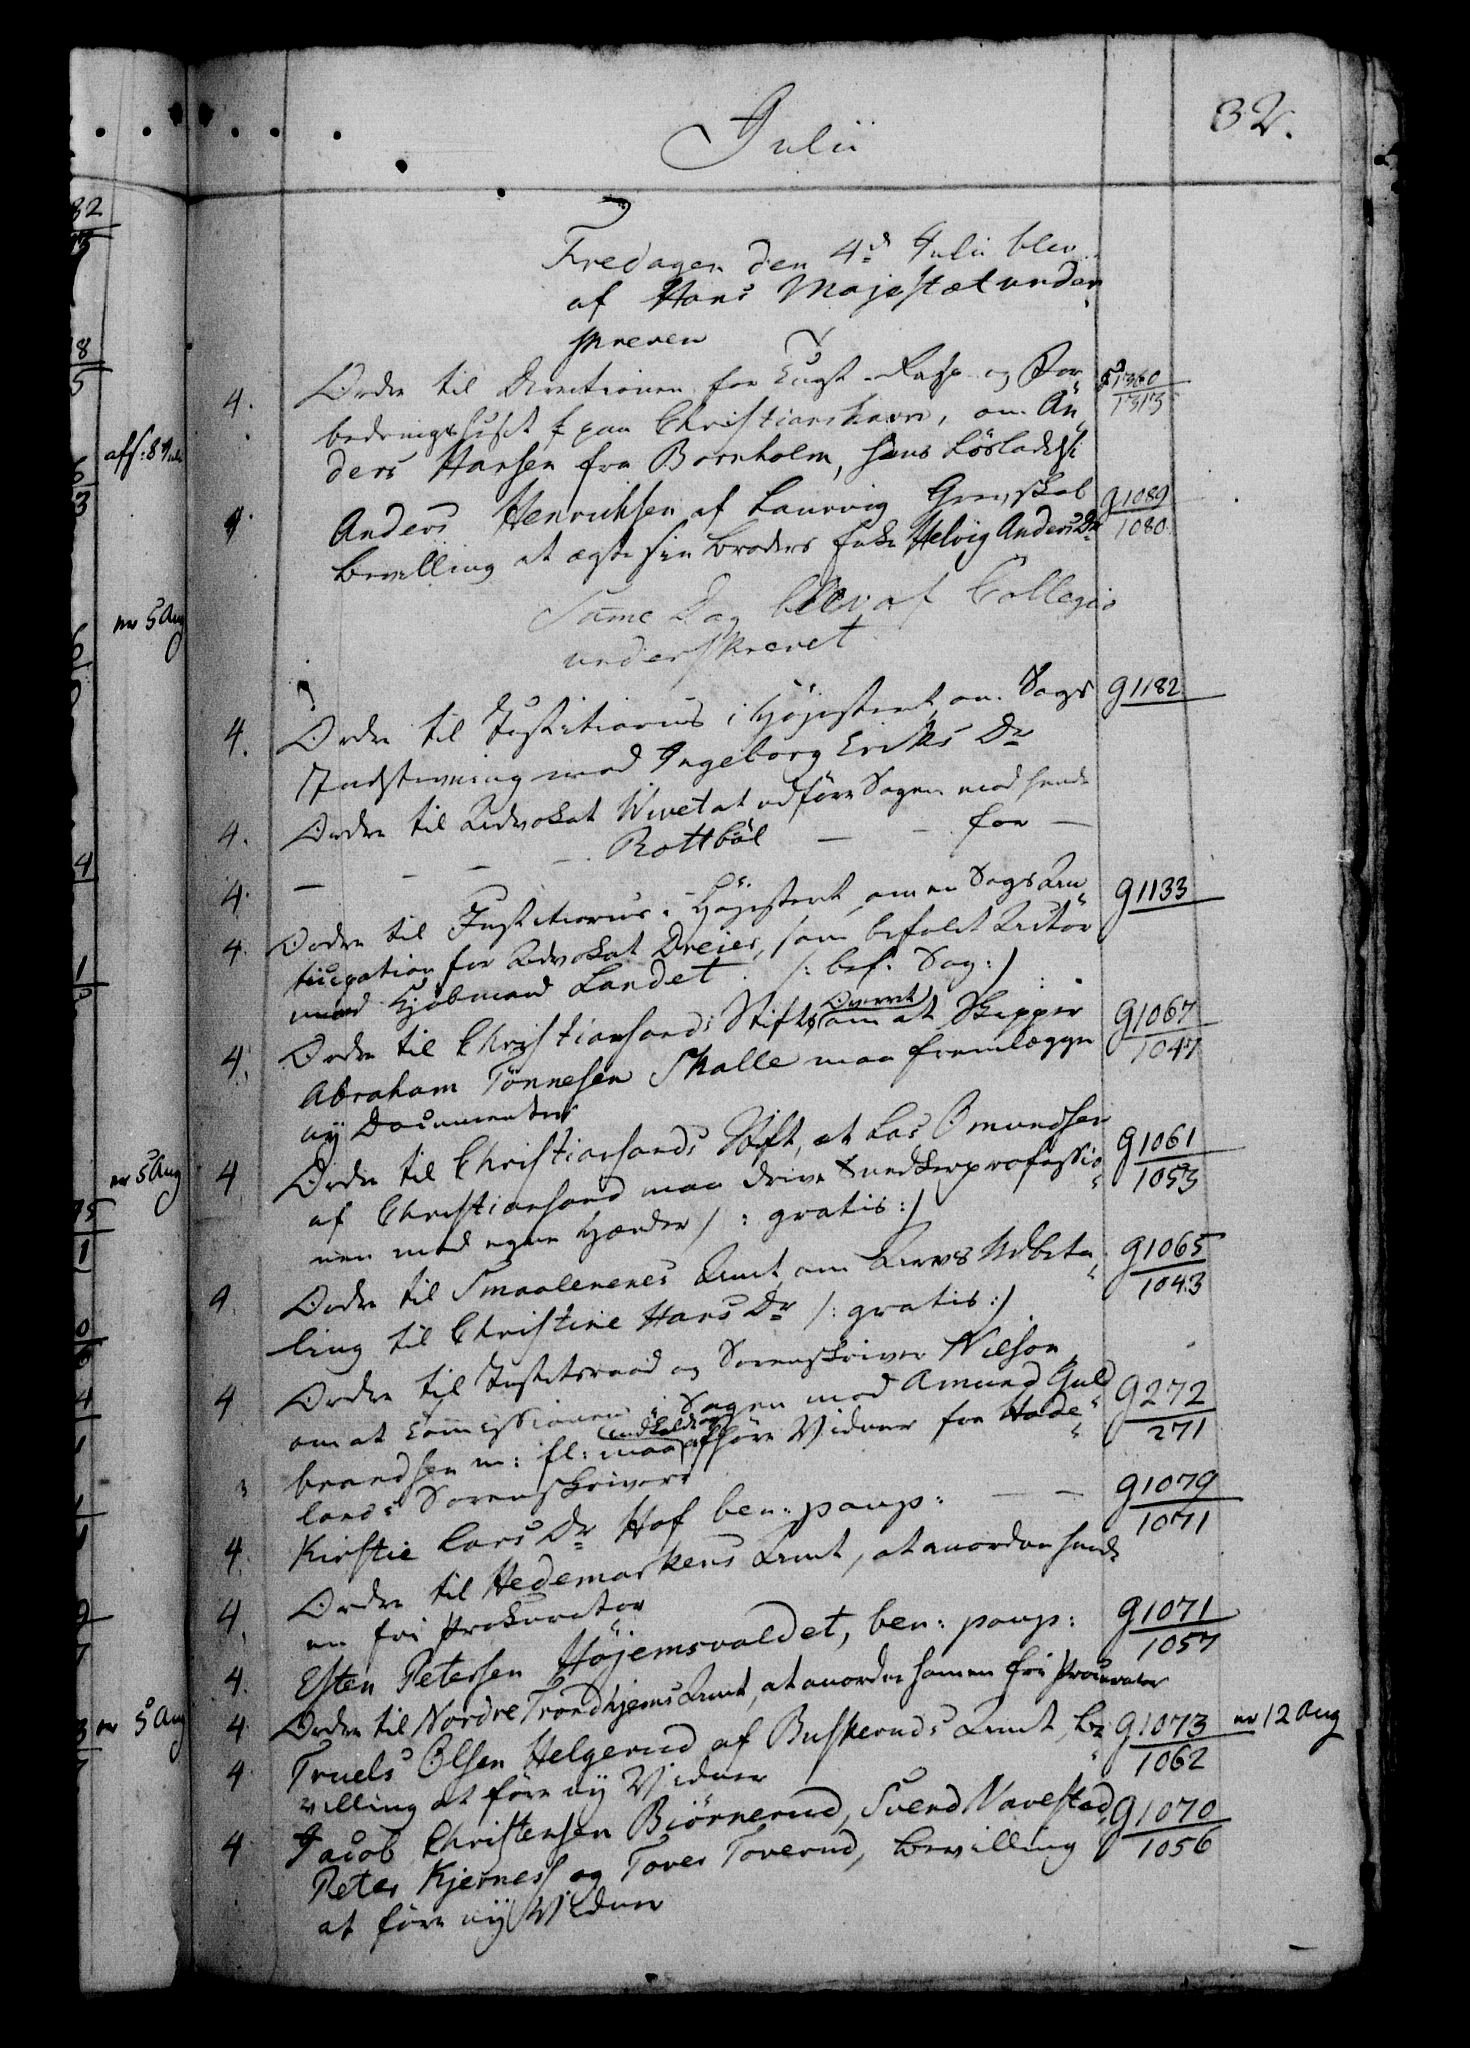 Julii
32.
Fredagen den 4d Julii blev
af Hans Majestæt under
skreven
4. Ordre til Directionen for Tugt- Rasp- og For
bedringshuset paa Christianshavn, om An
ders Hansen fra Bornholm, hans Løsladelse
1360
1313
4. Anders Henrichsen af Laurvig Grevskab
Bevilling at ægte sin Broders Enke Helvig Anders Dr
g1089
1080
Same Dag blev af Collegio
underskrevet
4. Ordre til Justitiarius i Højesteret om Sags
Indstevning mod Ingeborg Eriks Dr
g1182
4. Ordre til Advokat Wivet at udføre Sagen mod hende
4. — — — Rottbøl — — for —
4. Ordre til Justitiarius i Højesteret, om en Sags An
ticipation for Advokat Dreier, som befalet Actor
mod Kjøbmand Landet /: bef. Sag :/
g1133
4. Ordre til Christiansands Stifts Overret om at Skipper
Abraham Tønnesen Skalle maa fremlægge
ny Documenter
g1067
1047
4 Ordre til Christiansands Stift, at Lars Omundsen
af Christiansand maa drive Snedkerprofessio
nen med egne Hænder /: gratis :/
g1061
1053
4. Ordre til Smaalenenes Amt om Arvs Udbeta
ling til Christine Hans Dr /: gratis :/
g1065
1043
4 Ordre til Justitsraad og Sorenskriver Nilson
om at Comissionen i Sagen mod Amund Guld
brandsen m: fl: maa indkalde og afhøre Vidner fra Hade
lands Sorenskriveri
g272
271
4. Kirstie Lars Dr Hof ben: paup: — —
g1079
1071
4. Ordre til Hedemarkens Amt, at anordne hende
en fri Prokurator
4. Esten Petersen Højemsvaldet, ben: paup:
g1071
1057
4 Ordre til Nordre Trondhjems Amt, at anordne ham en fri Procurator
4 Truels Olsen Helgerud af Buskeruds Amt, Be
villing at føre ny Vidner
g1073
1062
er 12 Aug
4 Jacob Christensen Biørnerud, Svend Navestad,
Peter Kjernes og Tover Toverud, Bevilling
at føre ny Vidner
g1070
1056
afs: 8 Julii
er 5 Aug
er 5 Aug
er 5 Aug